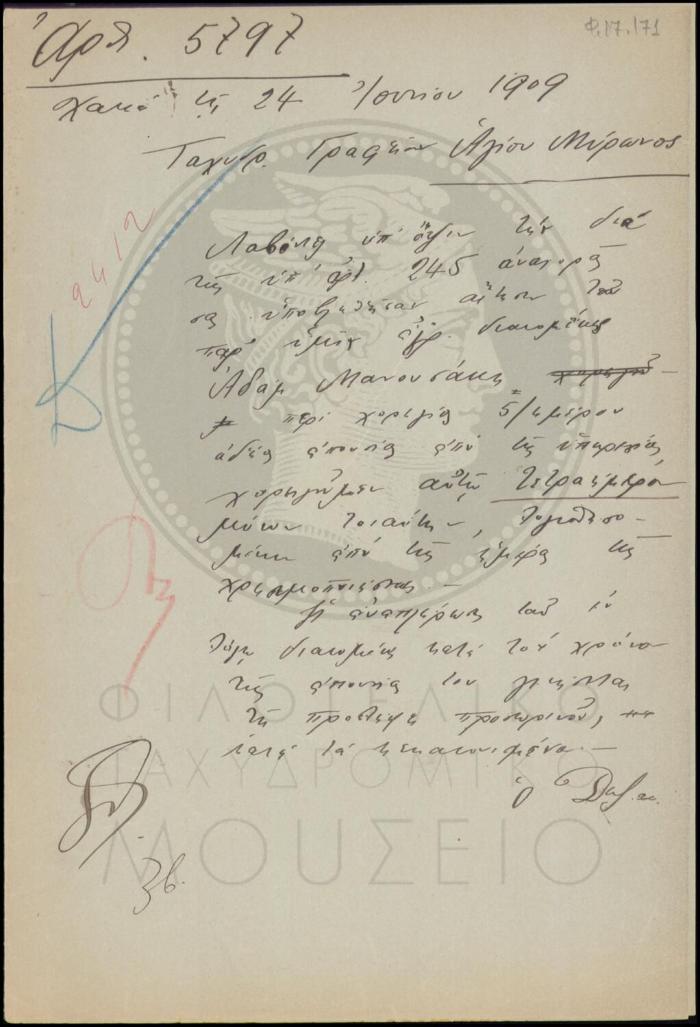 Φ.17.171
Ἀρθ. 5797
Χανιά τῇ 24 Ἰουνίου 1909
Ταχυδρ. Γραφεῖον Ἁγίου Μύρωνος
2412
Λαβόντες ὑπ' ὄψιν τὴν διὰ
τῆς ὑπ' ἀρ. 245 ἀναφορᾶς
σας ὑποβληθεῖσαν αἴτησιν τοῦ
παρ' ὑμῖν ἀγρ. διανομέως
Ἀδάμ Μανουσάκη
περὶ χορηγίας 5/ημέρου
ἀδείας ἀπουσίας ἀπὸ τῆς ὑπηρεσίας
χορηγοῦμεν αὐτῷ τετραήμερον
μόνον τοιαύτην, λογισθησο-
μένην ἀπὸ τῆς ἡμέρας τῆς
χρησιμοποιήσεως.—
Ἡ ἀναπλήρωσις τοῦ ἐν
λόγῳ διανομέως κατὰ τὸν χρόνον
τῆς ἀπουσίας του
προσωρινοῦ,
κατὰ τὰ κεκανονισμένα.—
ὁ
ΦΙΛΟΤΕΛΙΚΟ
ΤΑΧΥΔΡΟΜΙΚΟ
ΜΟΥΣΕΙΟ